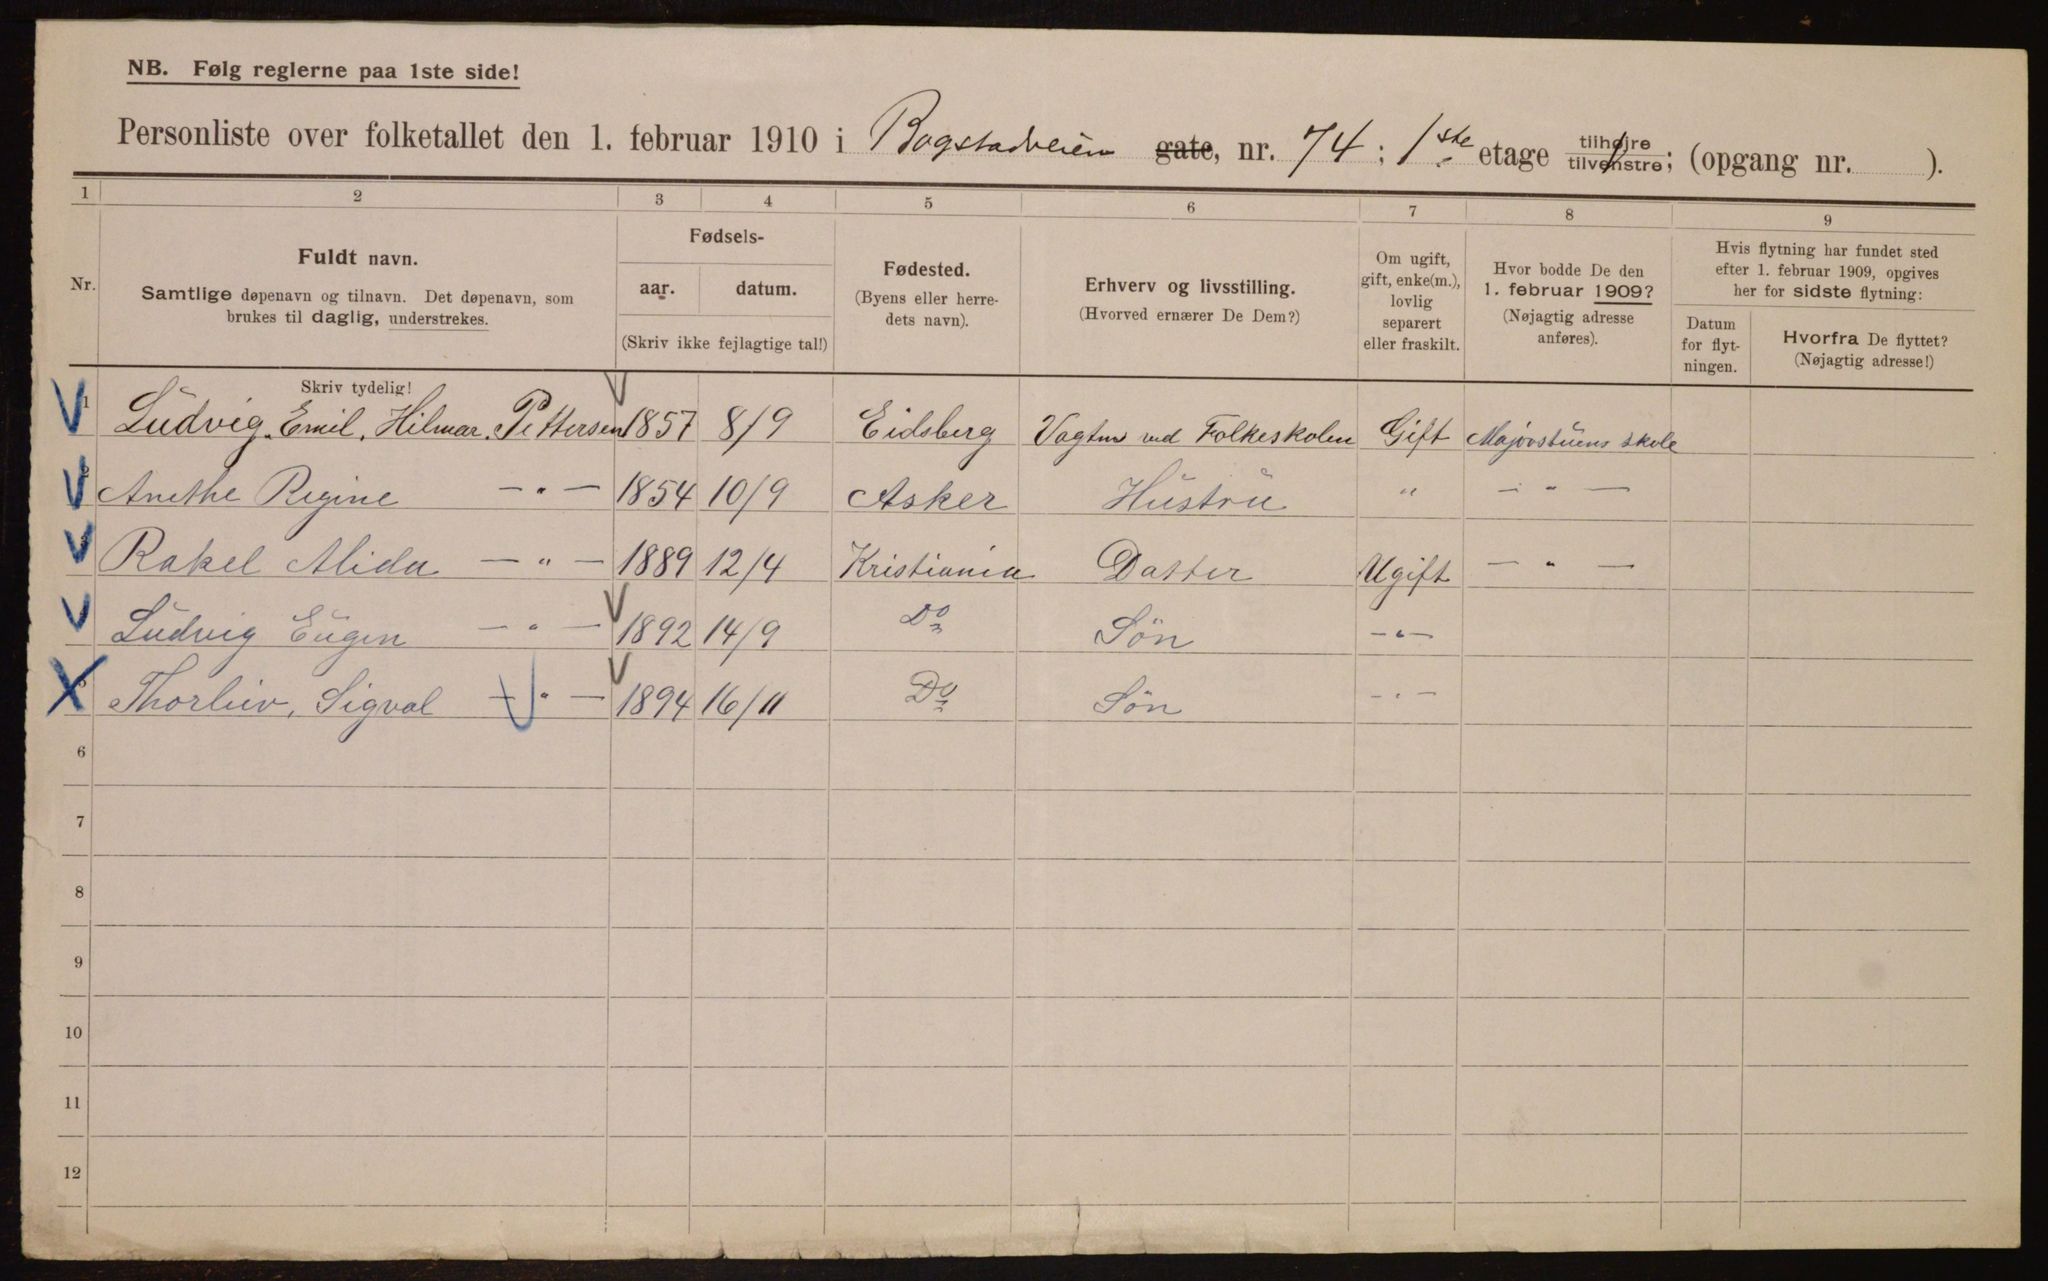 NB. Følg reglerne paa 1ste side!
Personliste over folketallet den 1. februar 1910 i Bogstadveien gate, nr. 74; 1ste etage tilhøjre tilvenstre; (opgang nr. ).
1 2 3 4 5 6 7 8 9
Nr.
Fuldt navn.
Samtlige døpenavn og tilnavn. Det døpenavn, som
brukes til daglig, understrekes.
Skriv tydelig!
Fødsels-
aar. datum.
(Skriv ikke fejlagtige tal!)
Fødested.
(Byens eller herre-
dets navn).
Erhverv og livsstilling.
(Hvorved ernærer De Dem?)
Om ugift,
gift, enke(m.),
lovlig
separert
eller fraskilt.
Hvor bodde De den
1. februar 1909?
(Nøjagtig adresse
anføres).
Hvis flytning har fundet sted
efter 1. februar 1909, opgives
her for sidste flytning:
Datum
for flyt-
ningen.
Hvorfra De flyttet?
(Nøjagtig adresse!)
1 Ludvig. Emil. Hilmar. Pettersen 1857 8/9 Eidsberg ved Folkeskolen Gift Majorstuens skole
Anethe Regine — " — 1854 10/9 Asker Hustru " — " —
Rakel Alida — " — 1889 12/4 Kristiania Datter Ugift — " —
Ludvig Eugen — " — 1892 14/9 Do Søn — " —
Thorleiv, Sigval — " — 1894 16/11 Do Søn — " —
6
7
8
9
10
11
12